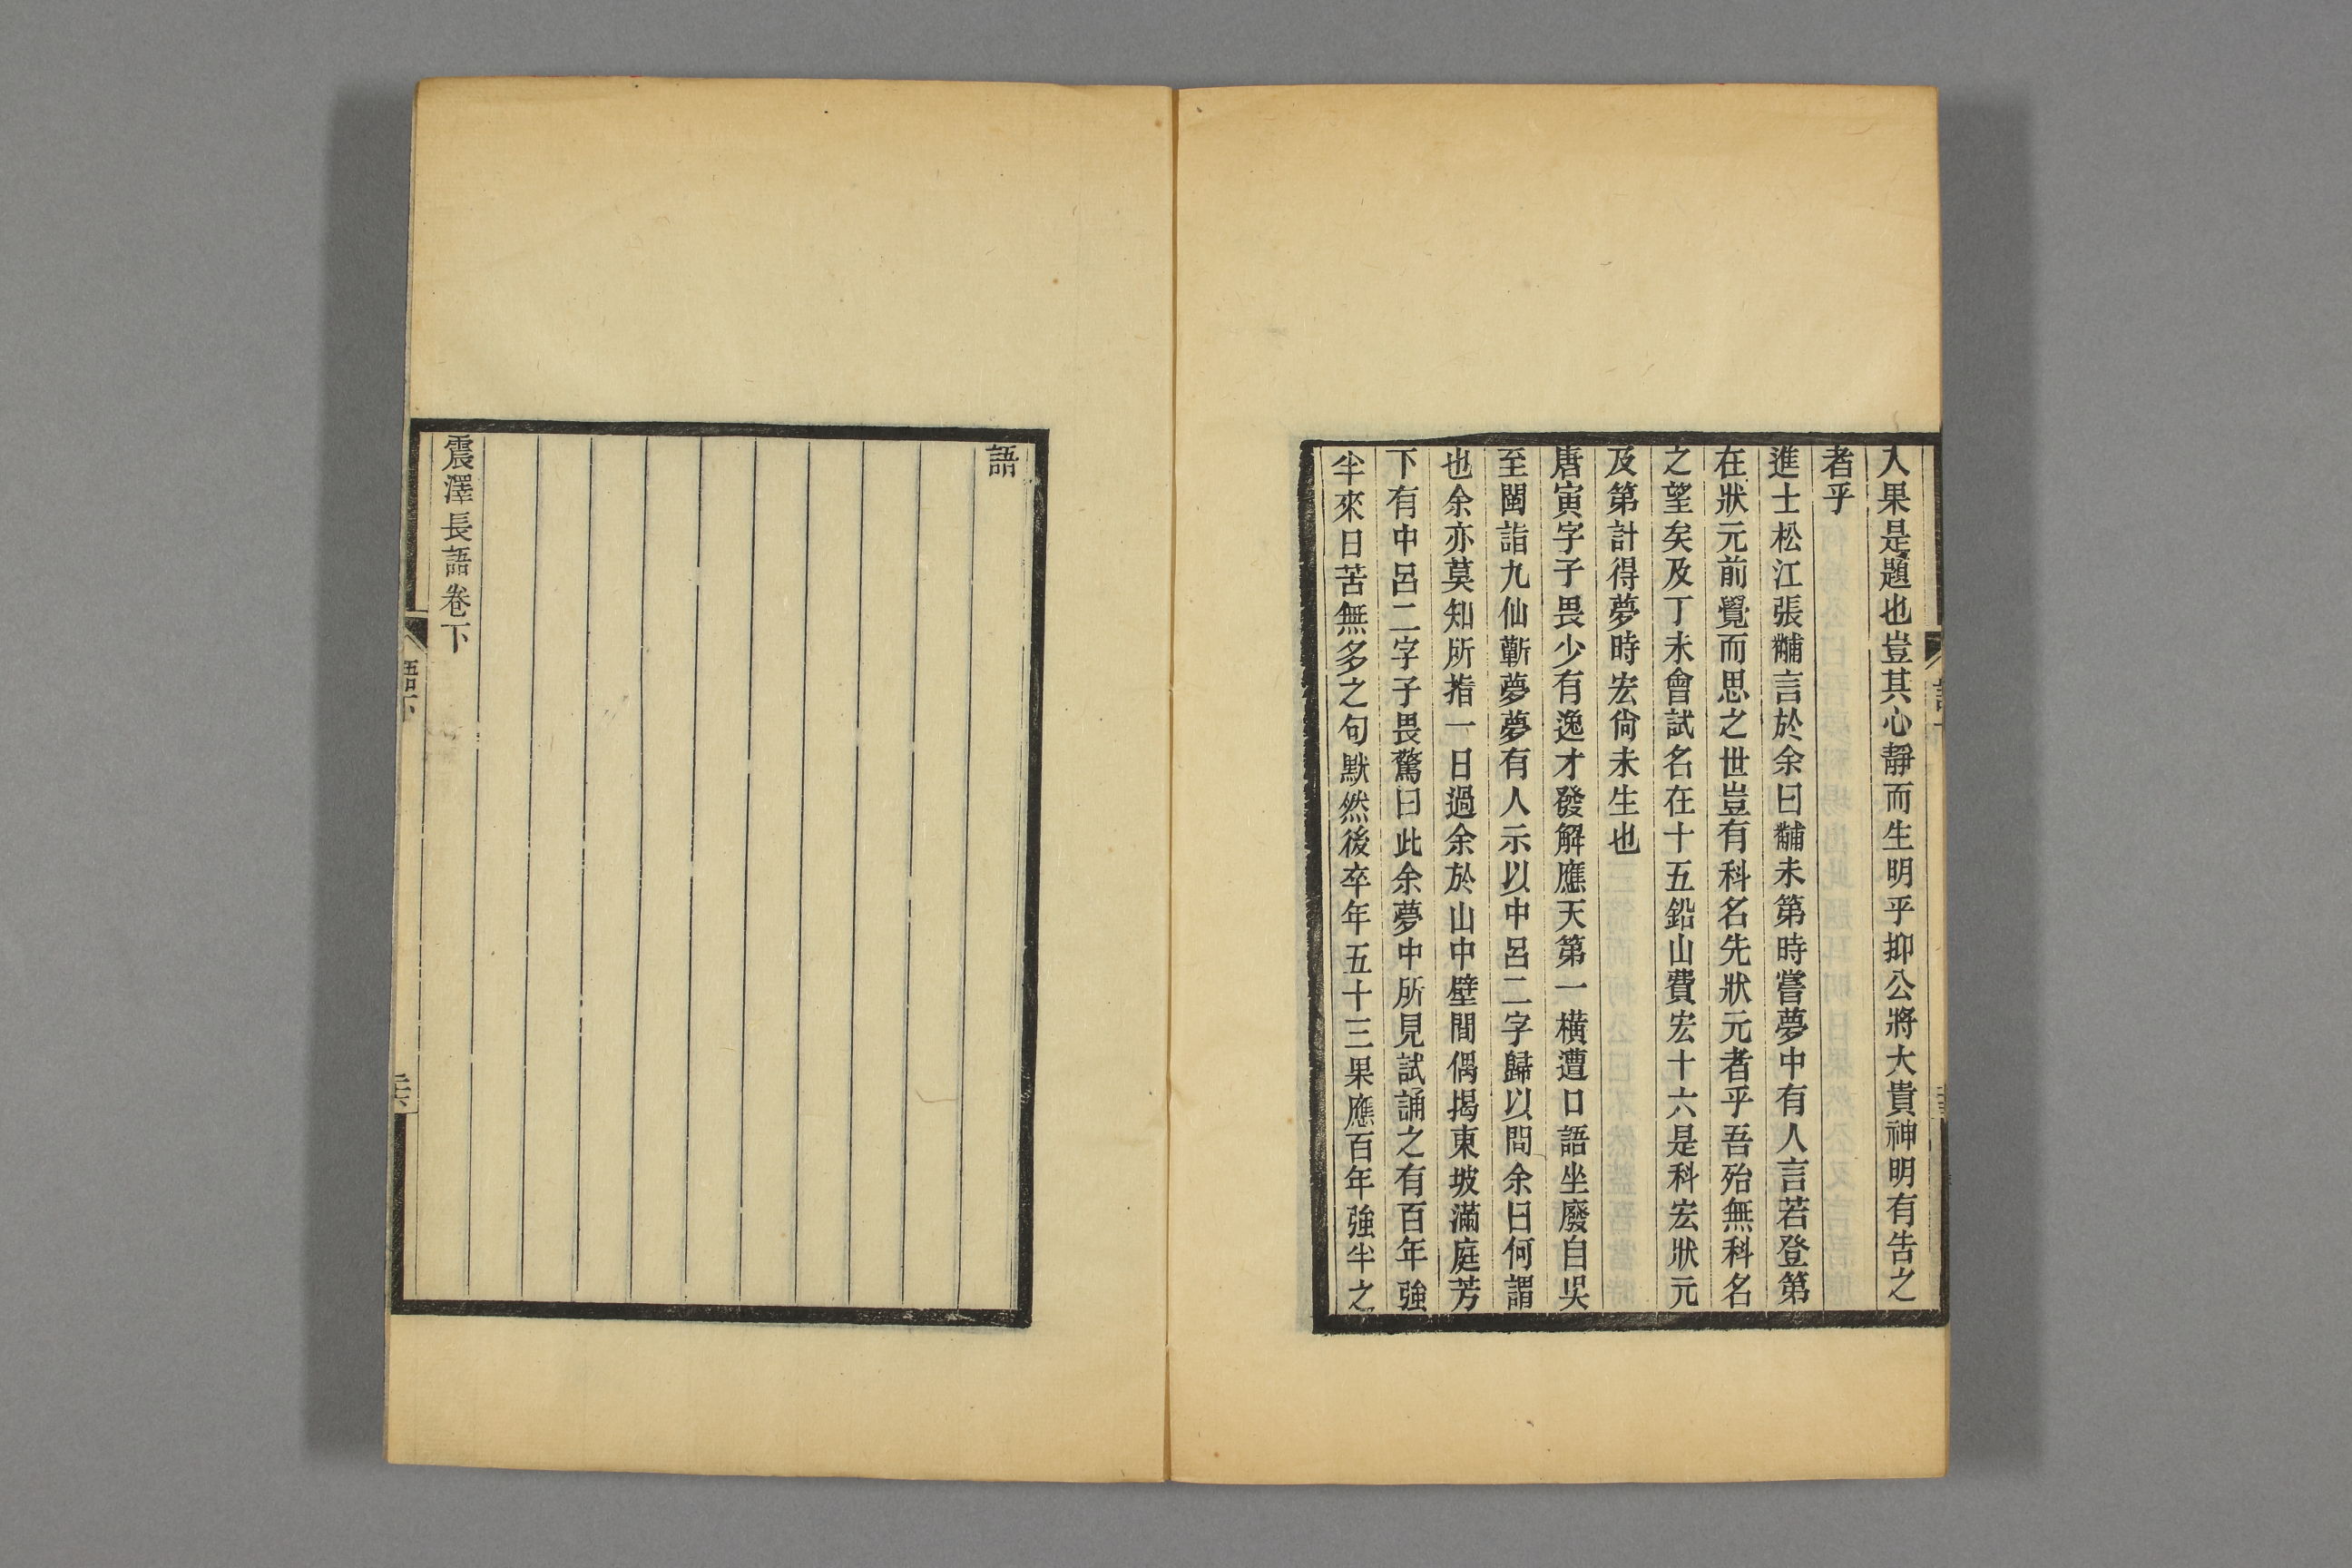 人果是題也豈其心靜而生明乎抑公將大貴神明有告之
者乎
進士松江張黼言於余曰黼未第時嘗夢中有人言若登第
在狀元前覺而思之世豈有科名先狀元者乎吾殆無科名
之望矣及丁未會試名在十五鉛山費宏十六是科宏狀元
及第計得夢時宏尙未生也
唐寅字子畏少有逸才發解應天第一橫遭口語坐廢自吳
至閩詣九仙蘄夢夢有人示以中呂二字歸以問余曰何謂
也余亦莫知所指一日過余於山中壁間偶揭東坡滿庭芳
下有中呂二字子畏驚曰此余夢中所見試誦之有百年強
半來日苦無多之句默然後卒年五十三果應百年強半之
語
震澤長語卷下
語下